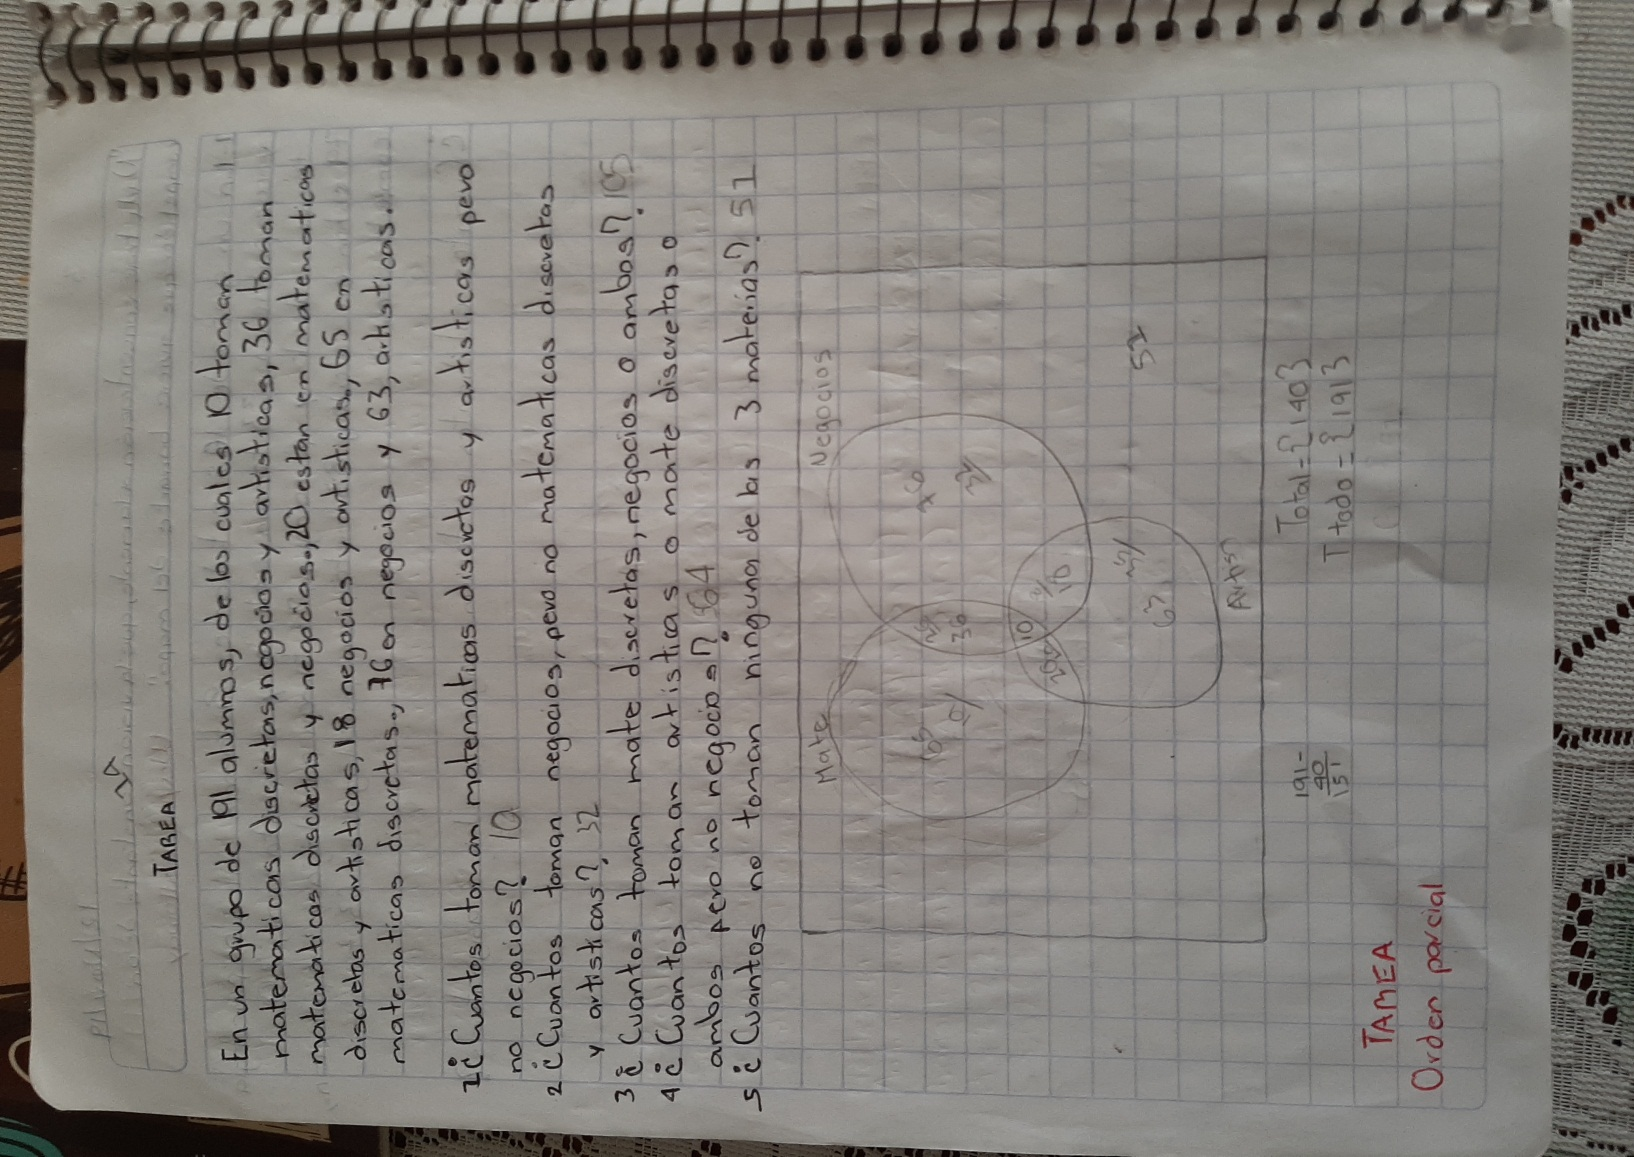 TAREA
En un grupo de 191 alumnos, de los cuales 10 toman
matematicas discretas, negocios y artisticas, 36 toman
matematicas discretas y negocios, 20 estan en matematicas
discretas y artisticas, 18 negocios y artisticas, 65 en
matematicas discretas, 76 en negocios y 63, artisticas.
1 ¿Cuantos toman matematicas discretas y artisticas pero
no negocios? 10
2 ¿Cuantos toman negocios, pero no matematicas discretas
y artisticas? 32
3 ¿Cuantos toman mate discretas, negocios o ambos? 105
4 ¿Cuantos toman artisticas o mate discretas o
ambos pero no negocios? 64
5 ¿Cuantos no toman ninguna de las 3 materias? 51
Mate Negocios
65 36 76
10
18
63
51
Artis
191-
40
151
Total={140}
T todo={191}
TAREA
Orden parcial